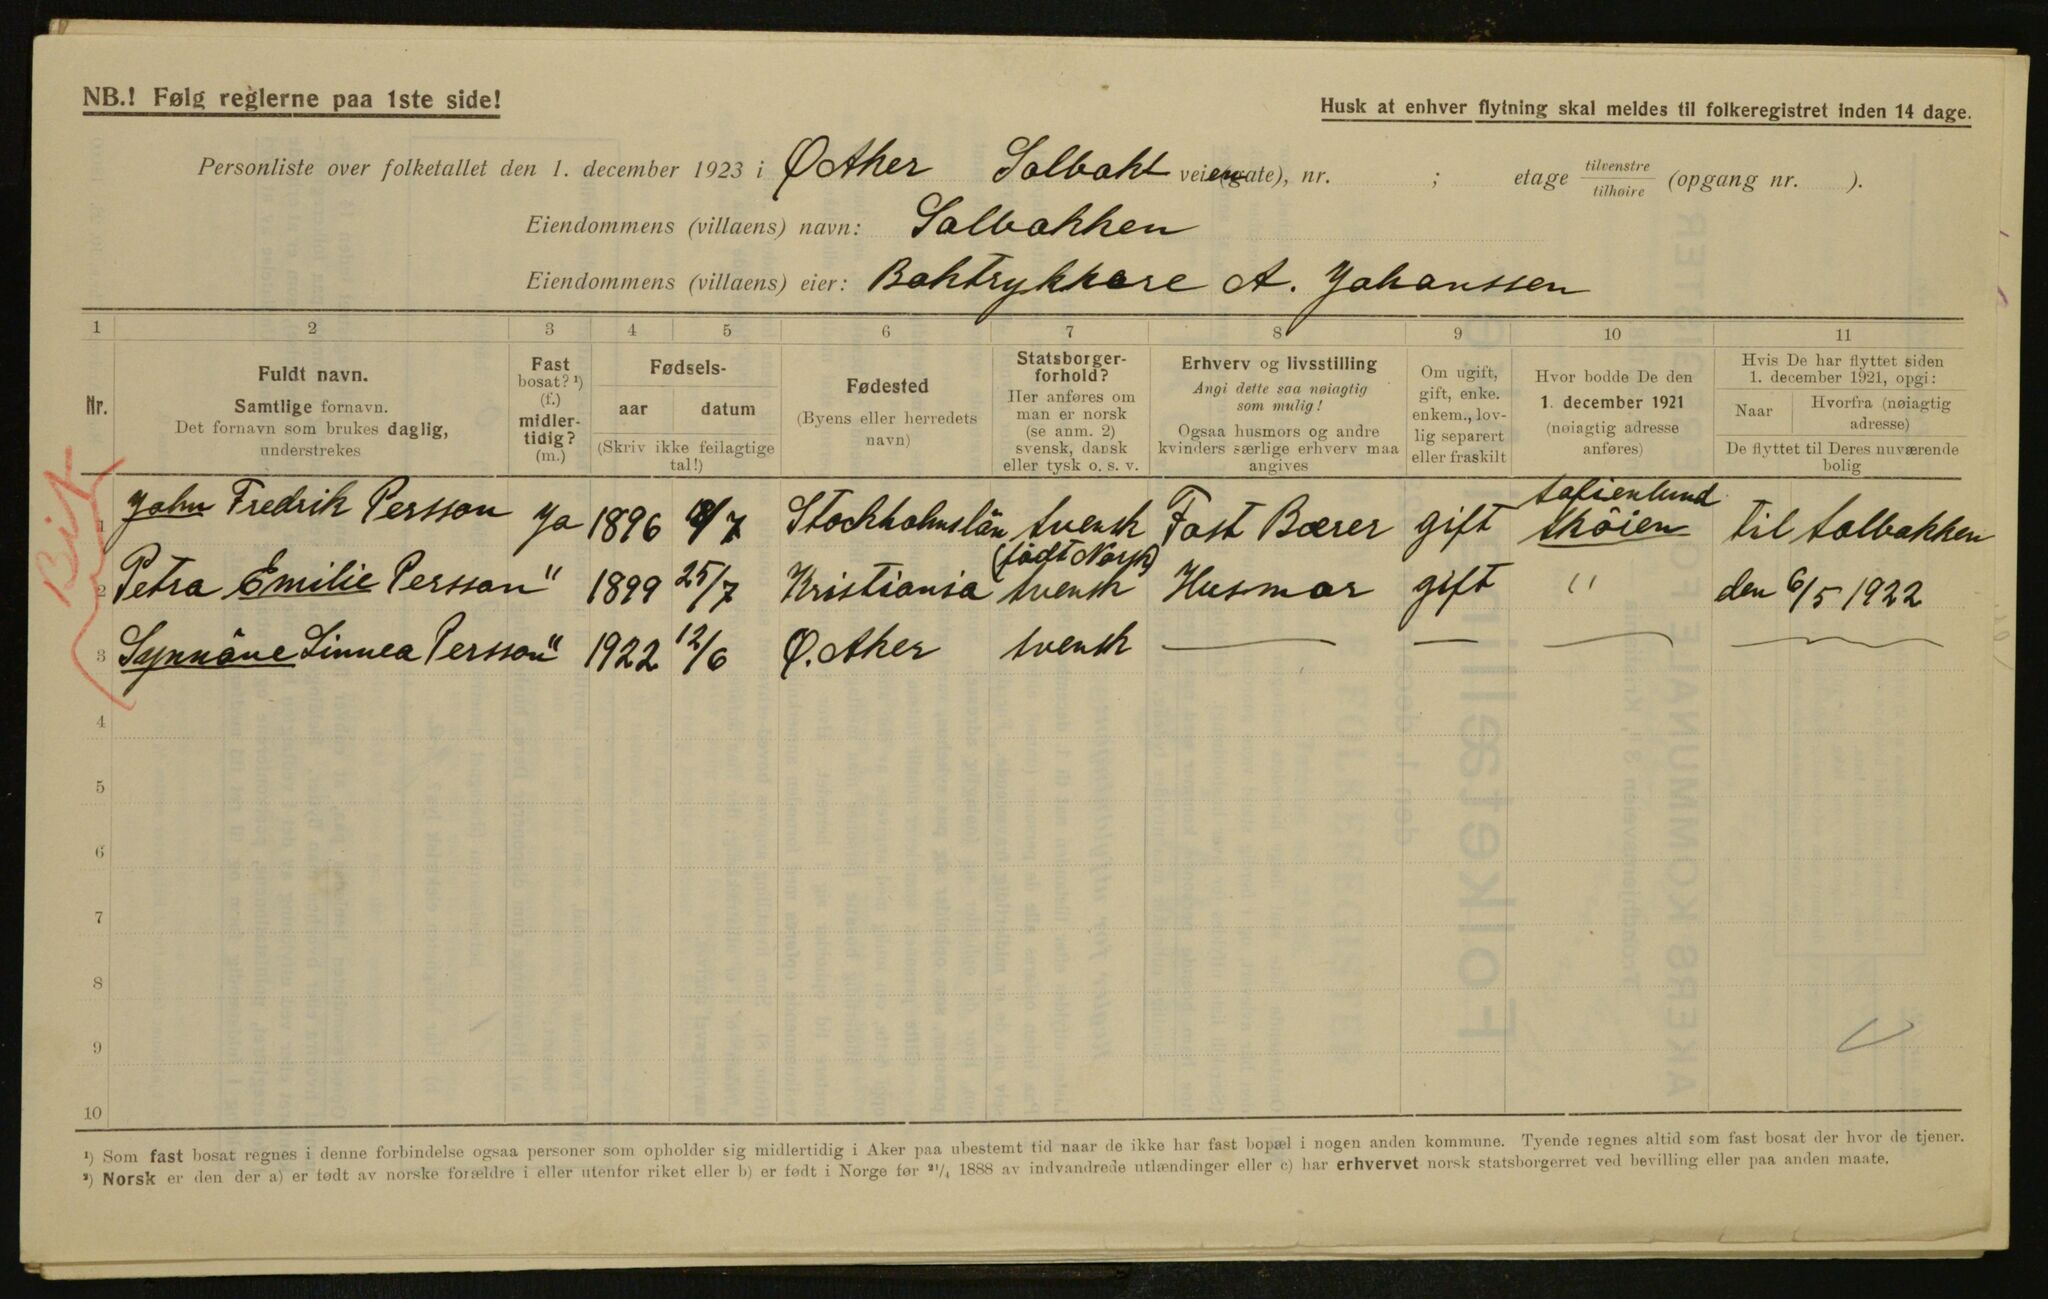 NB.! Følg reglerne paa 1ste side!
Husk at enhver flytning skal meldes til folkeregistret inden 14 dage.
Personliste over folketallet den 1. december 1923 i Ø Aker Solbakk veien (gate), nr. ; etage tilvenstre tilhøire (opgang nr. ).
Eiendommens (villaens) navn: Solbakken
Eiendommens (villaens) eier: Boktrykkare A. Johanssen
1 2 3 4 5 6 7 8 9 10 11
Nr.
Fuldt navn.
Samtlige fornavn.
Det fornavn som brukes daglig,
understrekes
Fast
bosat? ¹)
(f.)
midler-
tidig?
(m.)
Fødsels-
aar datum
(Skriv ikke feilagtige
tal!)
Fødested
(Byens eller herredets
navn)
Statsborger-
forhold?
Her anføres om
man er norsk
(se anm. 2)
svensk, dansk
eller tysk o. s. v.
Erhverv og livsstilling
Angi dette saa nøiagtig
som mulig!
Ogsaa husmors og andre
kvinders særlige erhverv maa
angives
Om ugift,
gift, enke.
enkem., lov-
lig separert
eller fraskilt
Hvor bodde De den
1. december 1921
(nøiagtig adresse
anføres)
Hvis De har flyttet siden
1. december 1921, opgi:
Naar Hvorfra (nøiagtig
adresse)
De flyttet til Deres nuværende
bolig
1 John Fredrik Persson Ja 1896 /7 Stockholmslän svensk Fast Bærer gift sofienlund sköien til solbakken
2 Petra Emilie Persson " 1899 25/7 Kristiania (född Norsk) svensk Husmor gift " den 6/5 1922
3 Synnöve Linnea Persson " 1922 12/6 Ø. Aker svensk — — — —
4
5
6
7
8
9
10
¹) Som fast bosat regnes i denne forbindelse ogsaa personer som opholder sig midlertidig i Aker paa ubestemt tid naar de ikke har fast bopæl i nogen anden kommune. Tyende regnes altid som fast bosat der hvor de tjener.
²) Norsk er den der a) er født av norske forældre i eller utenfor riket eller b) er født i Norge før ²¹/₄ 1888 av indvandrede utlændinger eller c) har erhvervet norsk statsborgerret ved bevilling eller paa anden maate.